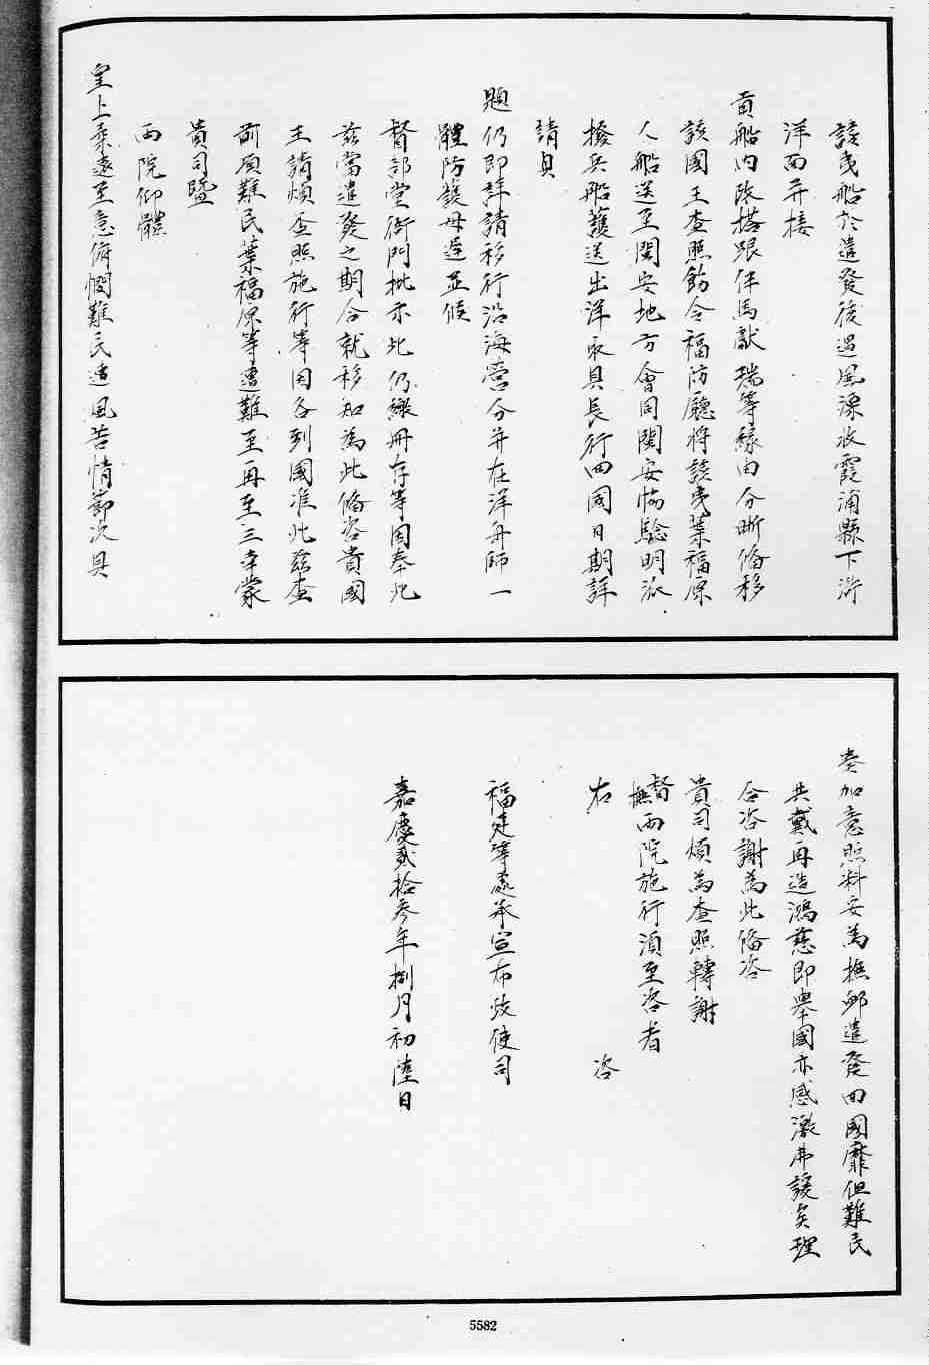 該曳船於遣發後遇風漂收霞浦縣下滸
洋面并接
貢船內附搭跟伴馬獻瑞等緣由分晰備移
該國王查照飭令福防廳將該曳葉福原
人船送至閩安地方會同閩安協驗明派
撥兵船護送出洋取具長行回國日期詳
請具
題仍即詳請移行沿海營分并在洋舟師一
體防護毋違並候
督部堂衙門批示此仍繳冊存等因奉此
茲當遣發之期合就移知為此備咨貴國
王請煩查照施行等因各到國准此茲查
前項難民葉福原等遭難至再至三幸蒙
貴司暨
兩院仰體
皇上柔遠至意俯憫難民遭風苦情節次具
奏加意照料安為撫卹遣發回國靡但難民
共戴再造鴻慈即舉國亦感激弗諼矣理
合咨謝為此備咨
貴司煩為查照轉謝
督撫兩院施行須至咨者
右 咨
福建等處承宣布政使司
嘉慶貳拾參年捌月初陸日
5582